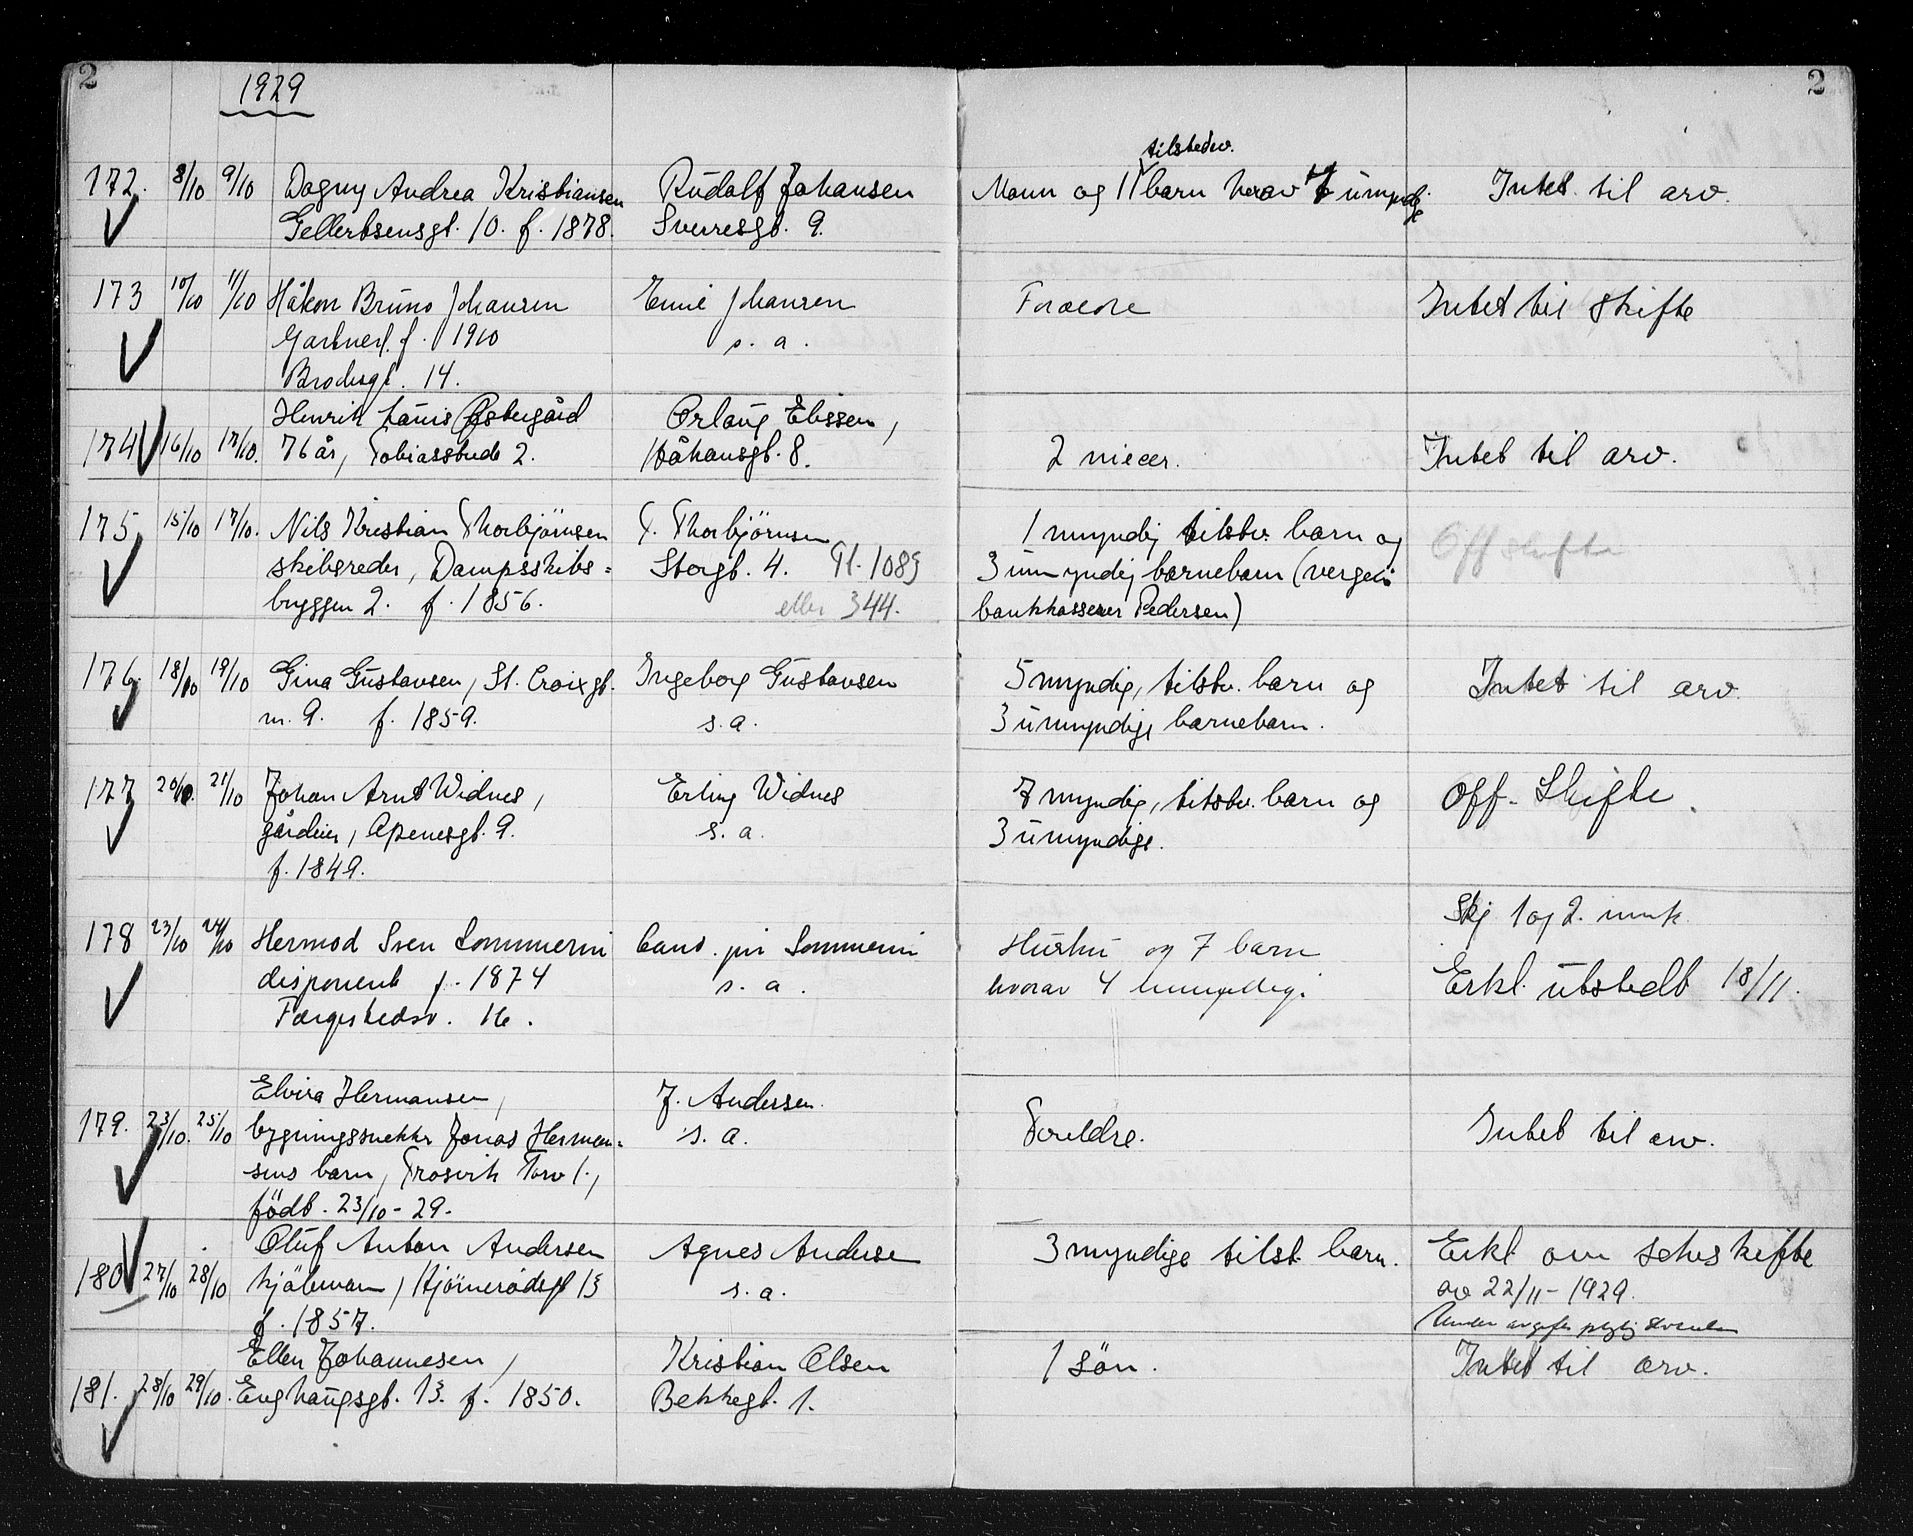 2
1929
2
172. 8/10 9/10 Dagny Andrea Kristiansen
Gellertsensgt. 10. f. 1878.
Rudolf Johansen
Sverresgt. 9.
tilstedev.
Mann og 11 barn herav umyndige
Intet til arv.
173 10/10 11/10 Håkon Bruno Johansen
Gartnerl. f. 1910
Brodergt. 14.
Emie Johansen
s. a.
Forædre
Intet til skifte
174 16/10 17/10. Henrik Louis Østergård
76 år, Tobiasstrede 2.
Orlaug Elissen,
Håkonsgt. 8.
2 niecer.
Intet til arv.
175 15/10 17/10. Nils Kristian Thorbjörnsen
skibsreder, Dampsskibs=
bryggen 2. f. 1856.
T. Thorbjörnsen
Storgt. 4. Tl. 1089
eller 344.
1 myndig tilstv. barn og
3 umyndig barnebarn (verge:
bankkasserer Pedersen)
Off skifte
176. 18/10 19/10 Gina Gustavsen, St. Croixgt.
m. 9. f. 1859.
Ingeborg Gustavsen
s. a.
5 myndig, tilstv. barn og
3 umyndige barnebarn.
Intet til arv.
177 20/10. 21/10 Johan Arnt Widnes,
gårdeier, Apenesgt. 9.
f. 1849.
Erling Widnes
s. a.
7 myndig, tilstv. barn og
3 umyndige.
Off. Skifte
178 23/10 24/10 Hermod Sven Sommerin
disponent f. 1874
Færgestedsv. 16.
Cand. jur Sommerin
s. a.
Hustru og 7 barn
hvorav 4 umyndige
Skj 1 og 2. innk.
Erkl. utstedt 18/11.
179. 23/10. 25/10 Elvira Hermansen,
bygningssnekker Jonas Herman=
sens barn, Trosvik Torv 1.,
födt. 23/10 - 29.
J. Andersen.
s. a.
Foreldre.
Intet til arv.
180 27/10 28/10 Oluf Anton Andersen
kjölman, Hjörnerödsgt 13
f. 1857.
Agnes Anderse
s. a.
3 myndige tilst. barn.
Erkl. om selvskifte
av 22/11 - 1929.
Under avgifts pligtig
181. 28/10 29/10. Ellen Johannesen,
Enghaugsgt. 13. f. 1850.
Kristian Olsen
Bekkegt. 1.
1 sön.
Intet til arv.